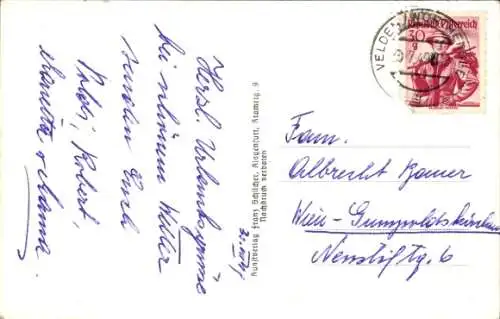 Herzl. Urlaubsgrüsse
bei schönem Wetter
senden Euch
Poldi, Robert,
Kunstverlag Franz Schilcher, Klagenfurt, Adamstg. 9
Nachdruck verboten
Republik Österreich
30
VELDEN
Fam.
Albrecht Kamer
Wien-Gumpoldskirchen
Neustiftg. 6